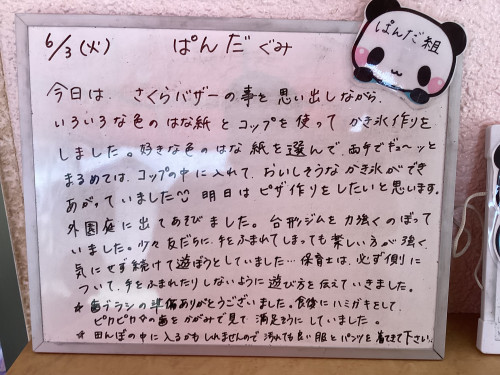 6/3(火) ぱんだぐみ
ぱんだ組
今日は、さくらバザーの事を思い出しながら、
いろいろな色のはな紙とコップを使ってかき氷作りを
しました。好きな色のはな紙を選んで、両手でギューッと
まるめては、コップの中に入れて、おいしそうなかき氷ができ
あがっていました😊 明日はピザ作りをしたいと思います。
外園庭に出てあそびました。台形ジムを力強くのぼって
いました。少々友だちに、手をふまれてしまっても楽しい方が強く、
気にせず続けて遊ぼうとしていました…保育士は、必ず側に
ついて、手をふまれたりしないように遊び方を伝えていきました。
☆歯ブラシの準備ありがとうございました。食後にハミガキをして、
ピカピカ✧の歯をかがみで見て満足そうにしていました。
☆田んぼの中に入るかもしれませんので汚れても良い服とパンツを着てきて下さい。